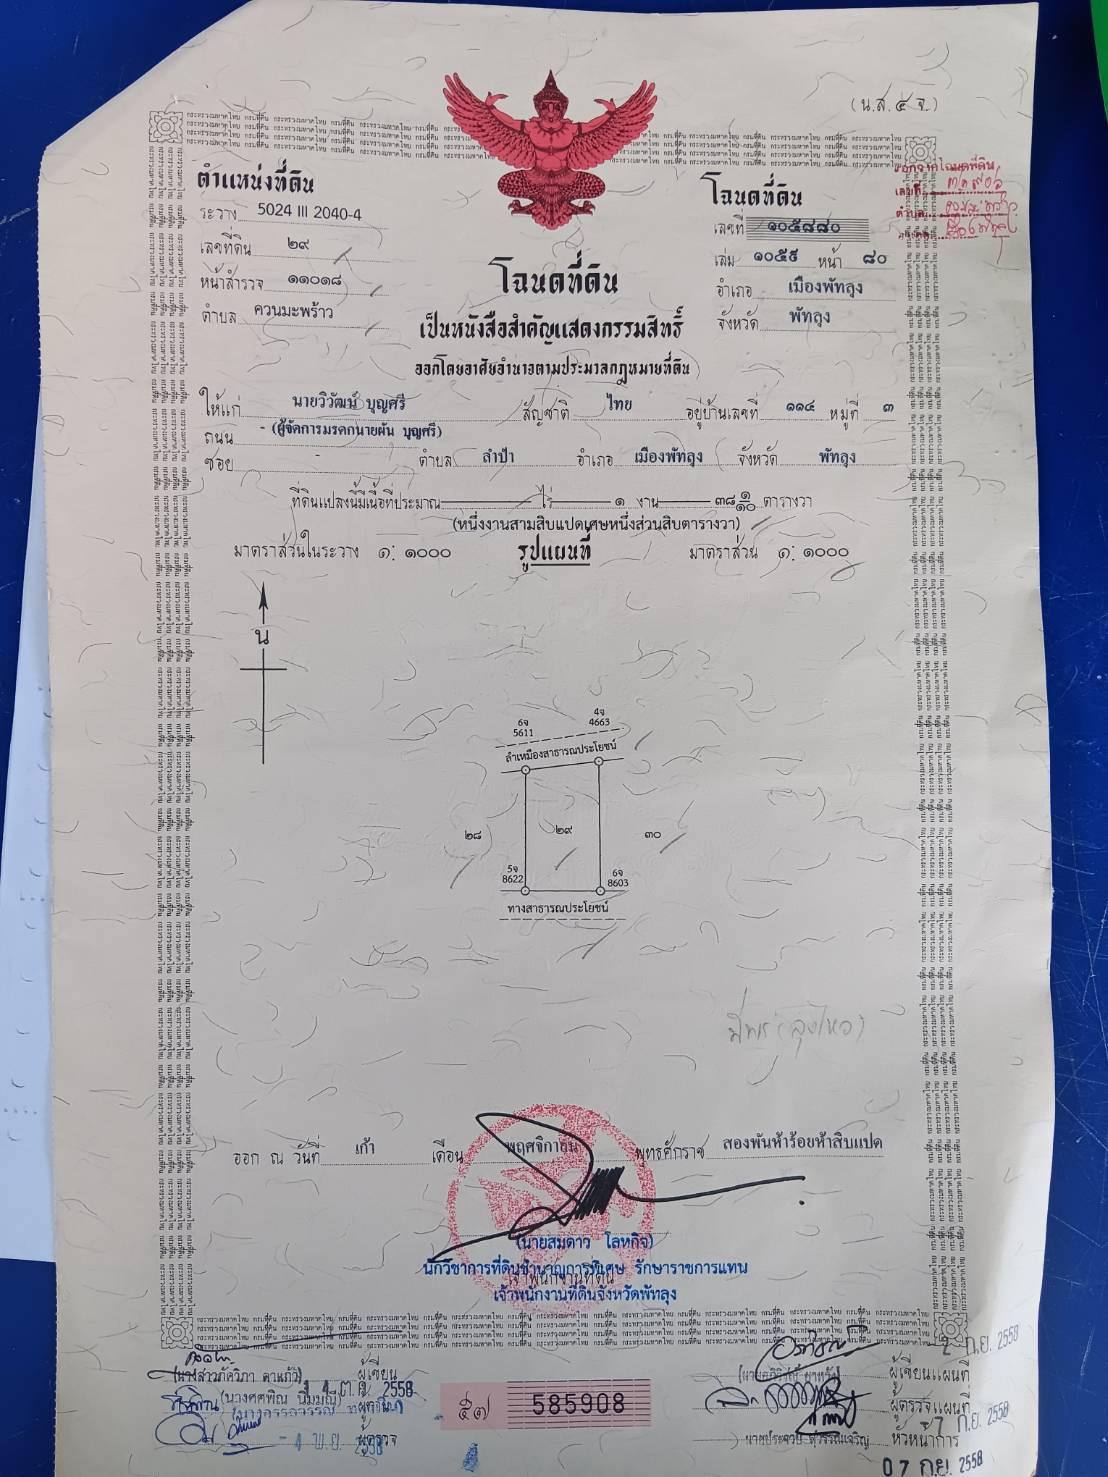 (น.ส.๔ จ.)
ตำแหน่งที่ดิน
ระวาง 5024 III 2040-4
เลขที่ดิน ๒๙
หน้าสำรวจ ๑๑๐๑๘
ตำบล ควนมะพร้าว
โฉนดที่ดิน
เลขที่ ๑๐๕๘๘๐
เล่ม ๑๐๕๙ หน้า ๘๐
อำเภอ เมืองพัทลุง
จังหวัด พัทลุง
โฉนดที่ดิน
เป็นหนังสือสำคัญแสดงกรรมสิทธิ์
ออกโดยอาศัยอำนาจตามประมวลกฎหมายที่ดิน
ให้แก่ นายวิวัฒน์ บุญศรี สัญชาติ ไทย อยู่บ้านเลขที่ ๑๑๔ หมู่ที่ ๓
ถนน - (ผู้จัดการมรดกนายผัน บุญศรี)
ซอย - ตำบล ลำปำ อำเภอ เมืองพัทลุง จังหวัด พัทลุง
ที่ดินแปลงนี้มีเนื้อที่ประมาณ ไร่ ๑ งาน ๓๘ ๑/๑๐ ตารางวา
(หนึ่งงานสามสิบแปดเศษหนึ่งส่วนสิบตารางวา)
มาตราส่วนในระวาง ๑: ๑๐๐๐ รูปแผนที่ มาตราส่วน ๑: ๑๐๐๐
น
6จ 5611
4จ 4663
ลำเหมืองสาธารณประโยชน์
๒๘ ๒๙ ๓๐
5จ 8622
6จ 8603
ทางสาธารณประโยชน์
ออก ณ วันที่ เก้า เดือน พฤศจิกายน พุทธศักราช สองพันห้าร้อยห้าสิบแปด
(นายสมดาว โลหกิจ)
นักวิชาการที่ดินชำนาญการพิเศษ รักษาราชการแทน
เจ้าพนักงานที่ดิน
เจ้าพนักงานที่ดินจังหวัดพัทลุง
ผู้เขียน
ผู้ทาน
ผู้ตรวจ
- 4 พ.ย. 2558
๕๗ 585908
2 ก.ย. 2558
ผู้เขียนแผนที่
ผู้ตรวจแผนที่
หัวหน้าการ
07 ก.ย. 2558